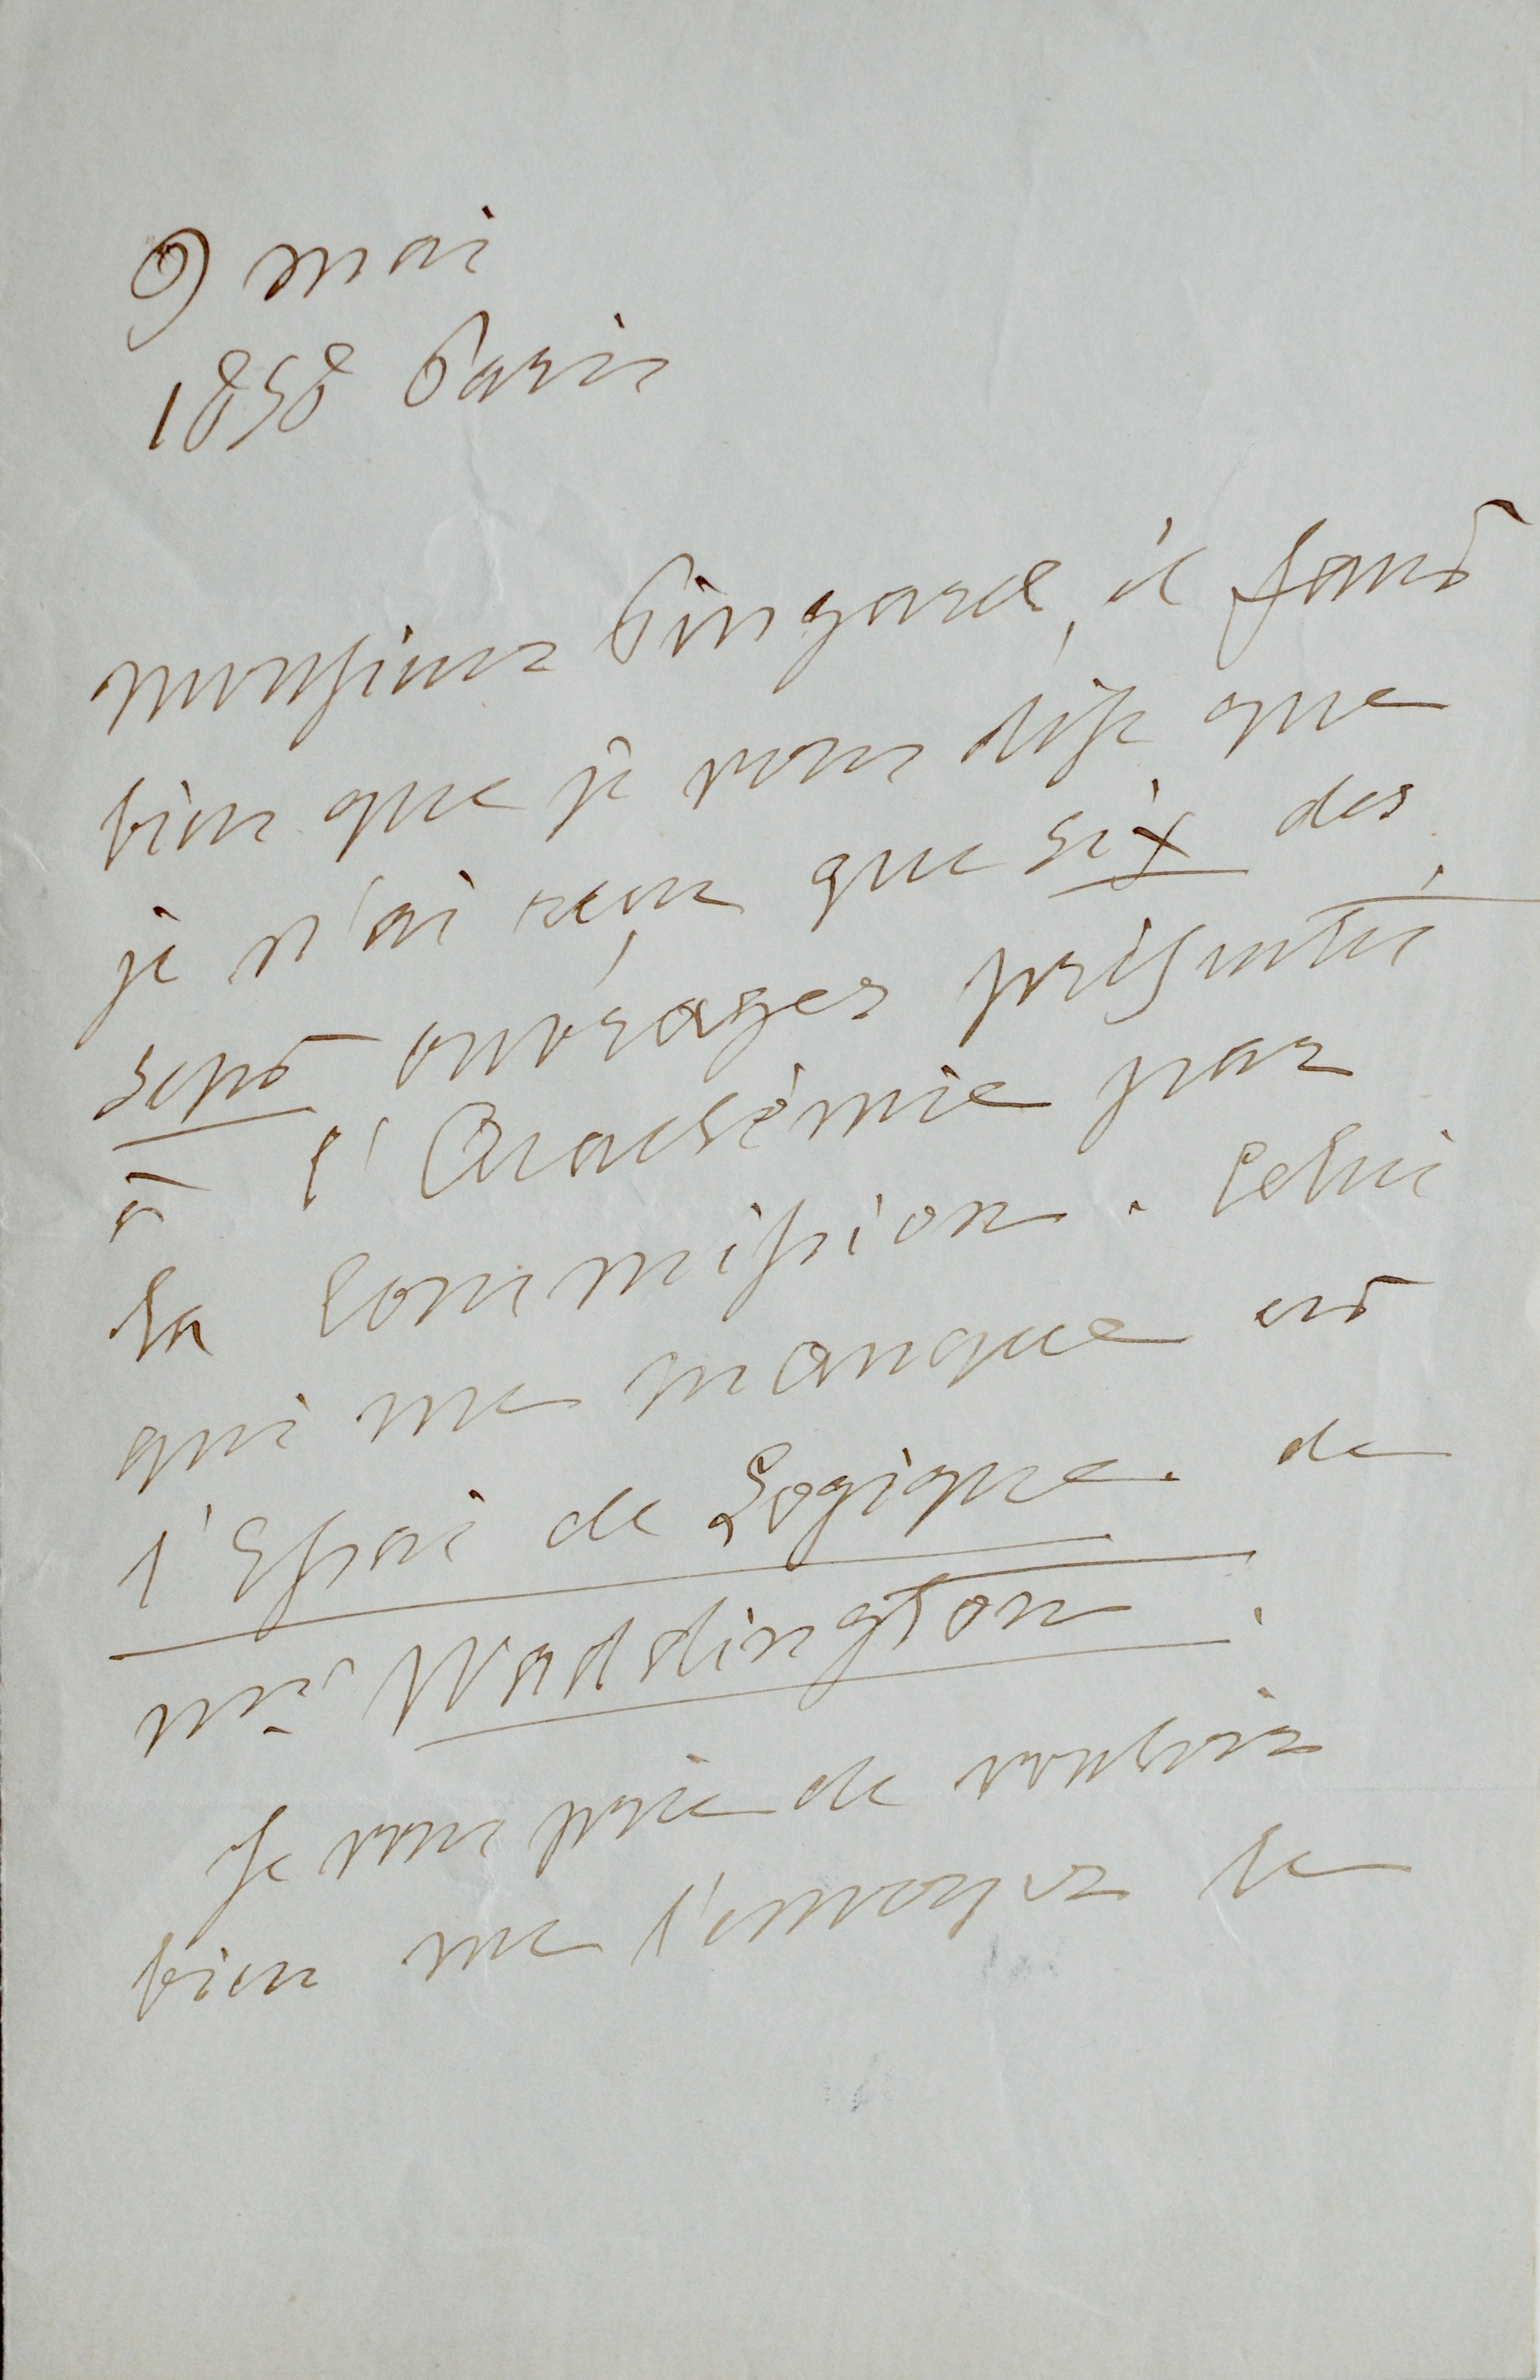 9 mai
1858 Paris
monsieur Pingard, il faut
bien que je vous dise que
je n'ai reçu que six des
sept ouvrages présentés
à l'Académie par
la Commission. Celui
qui me manque est
l'Essai de Logique de
Mr Waddington.
Je vous prie de vouloir
bien me l'envoyer le